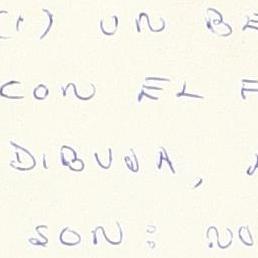 UN BE
CON EL F
DIBUJA,
SON: NO